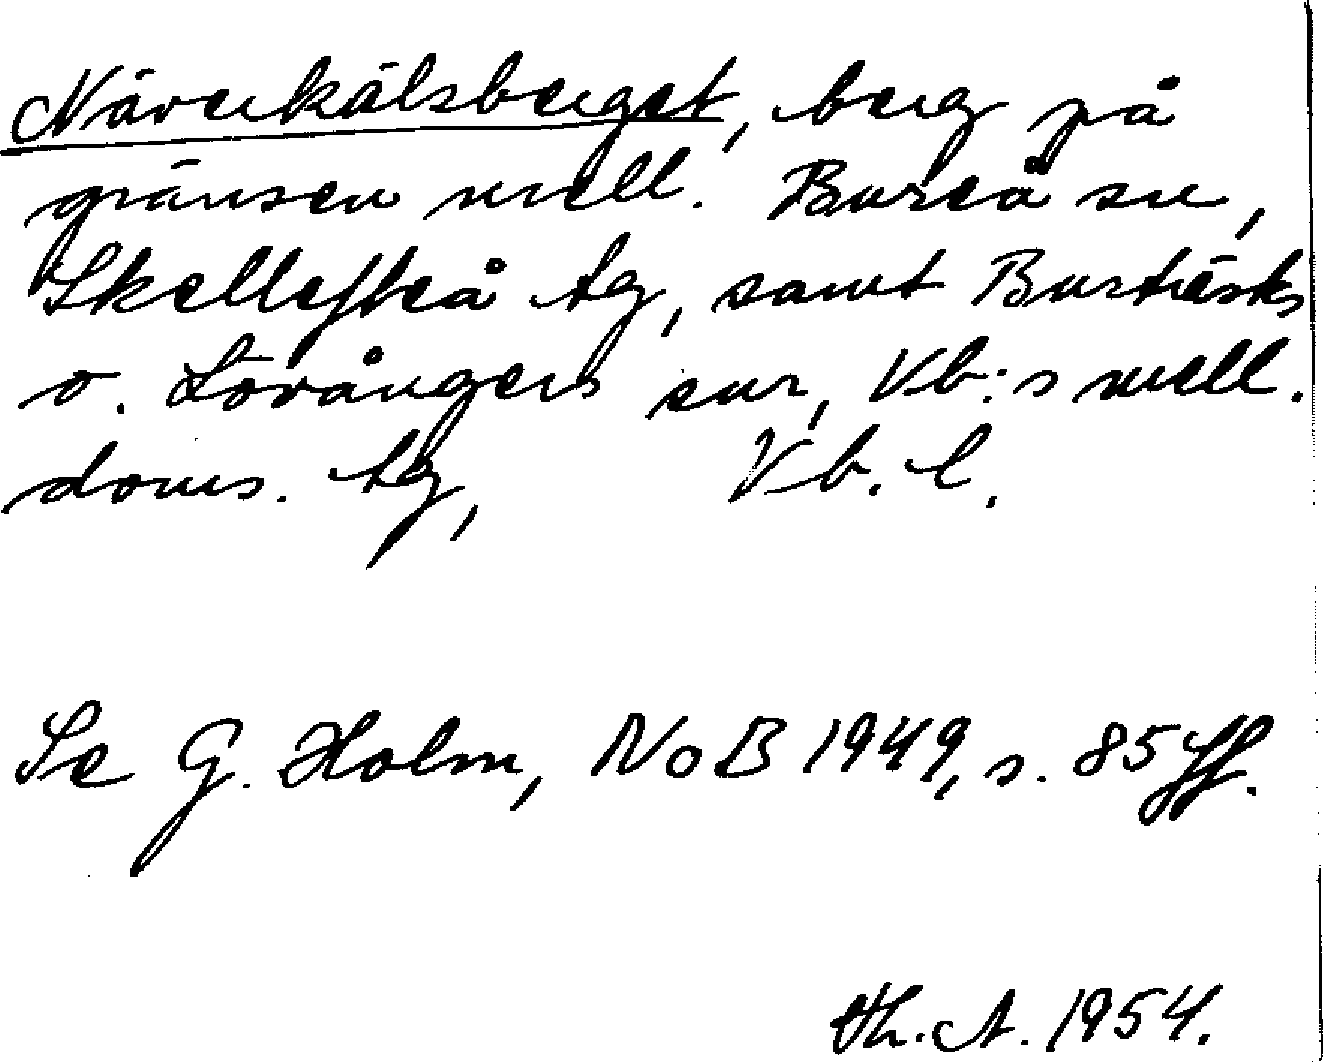 Näverkälsberget, berg på
gränsen mell. Bureå sn,
Skellefteå tg, samt Burträsks
o. Lövångers snr, Vb:s mell.
doms. tg, Vb. l.
Se G. Holm, NoB 1949, s. 85 ff.
Th. A. 1954.